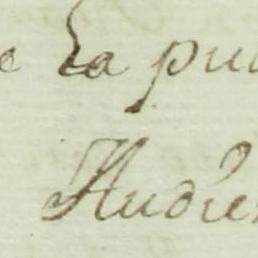 e La pu
Audie